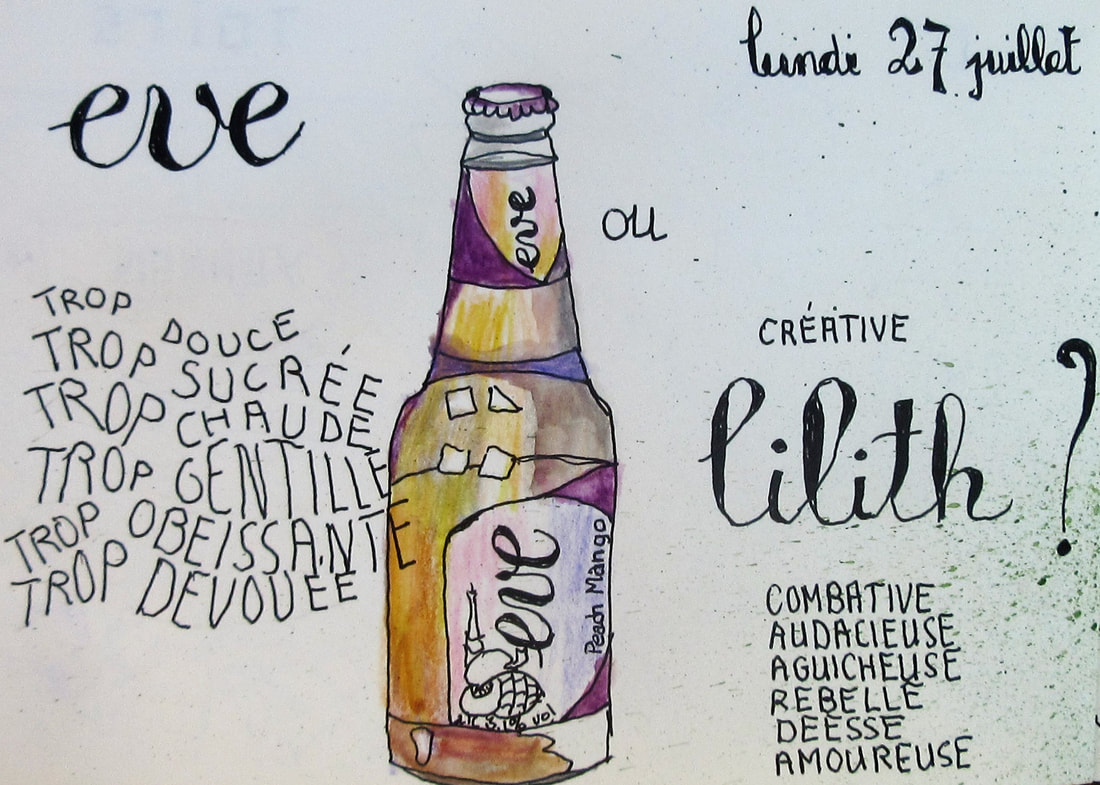 lundi 27 juillet
eve
ou
TROP DOUCE
TROP SUCRÉE
TROP CHAUDE
TROP GENTILLE
TROP OBEISSANTE
TROP DEVOUEE
eve
eve
Peach Mango
3.1% vol
CRÉATIVE
lilith ?
COMBATIVE
AUDACIEUSE
AGUICHEUSE
REBELLE
DEESSE
AMOUREUSE